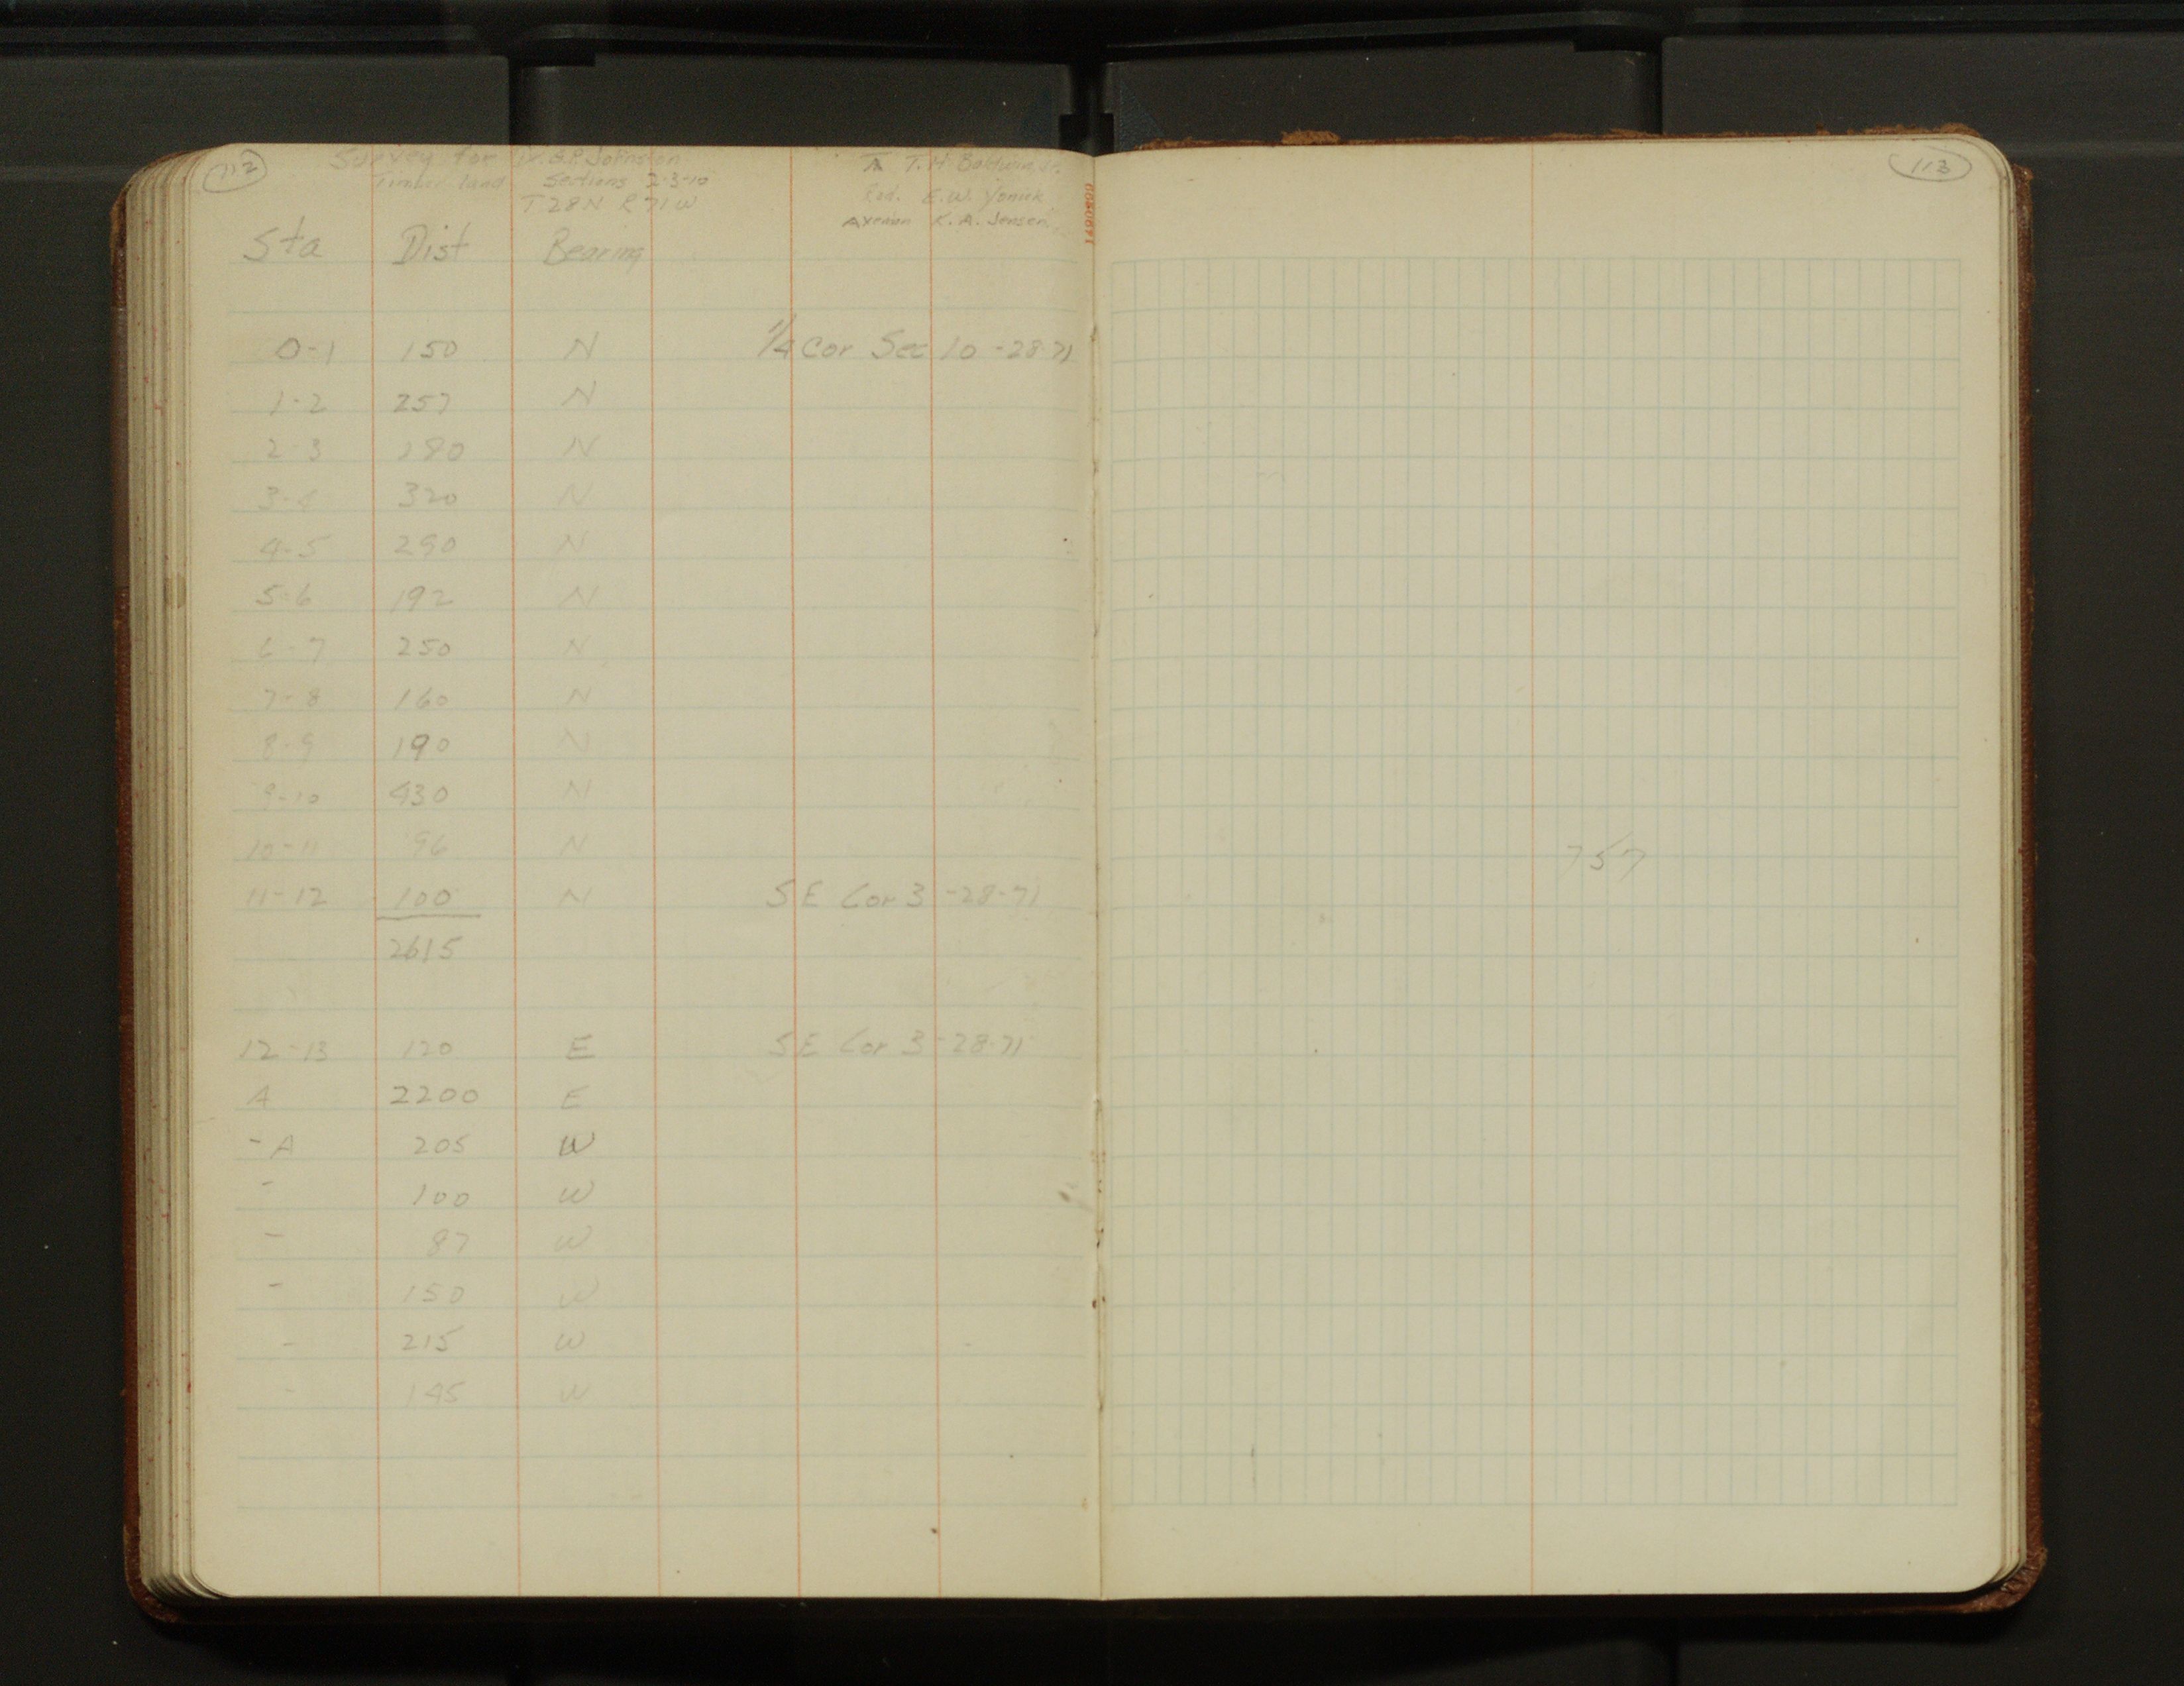 112
Survey for W.G.P. Johnston
Timber land Sections 2-3-10
T28N R71W
T.H. Baldwin Jr.
Rod. E.W. Yonick
Axeman K.A. Jensen
Sta Dist Bearing
0-1 150 N 1/4 Cor Sec 10-28-71
1-2 257 N
2-3 180 N
3-4 320 N
4-5 290 N
5-6 192 N
6-7 250 N
7-8 160 N
8-9 190 N
9-10 430 N
10-11 96 N
11-12 100 N SE Cor 3-28-71
2615
12-13 120 E SE Cor 3-28-71
A 2200 E
-A 205 W
- 100 W
- 87 W
- 150 W
- 215 W
- 145 W
113
757